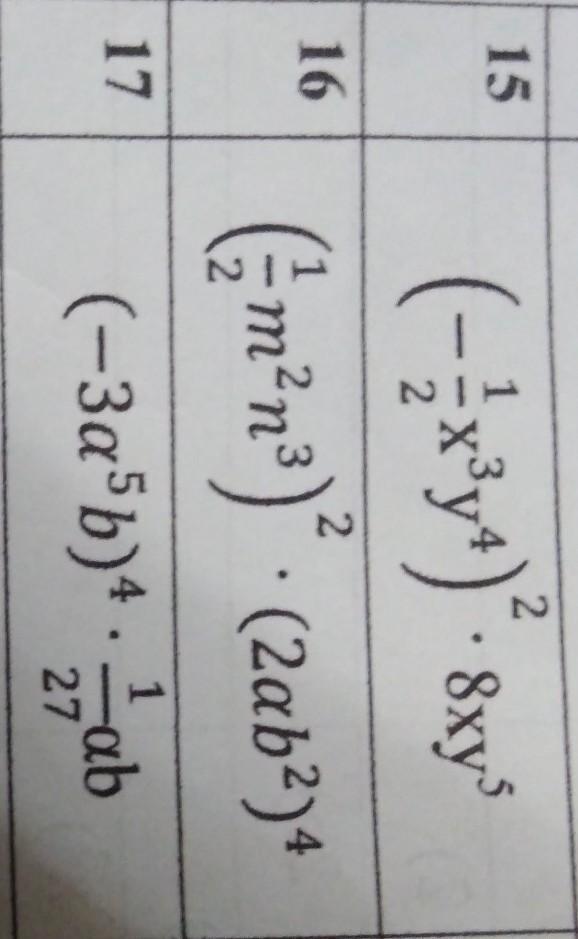 15 (-1/2 x³y⁴)² · 8xy⁵
16 (1/2 m²n³)² · (2ab²)⁴
17 (-3a⁵b)⁴ · 1/27 ab